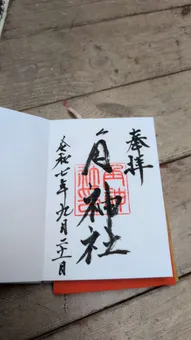 奉拝
月神社
令和七年九月二十一日